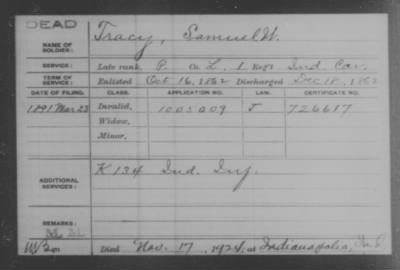 DEAD
NAME OF SOLDIER: Tracy, Samuel W.
SERVICE: Late rank, P. Co. L, 1 Reg't Ind. Cav.
TERM OF SERVICE: Enlisted Oct 16, 1862 Discharged Dec 18, 1862
DATE OF FILING. CLASS. APPLICATION NO. LAW. CERTIFICATE NO.
1891 Mar 23 Invalid, 1005009 J 726617
Widow,
Minor,
ADDITIONAL SERVICES: K 134 Ind. Inf.
REMARKS:
Died Nov. 17, 1925, at Indianapolis, Ind.